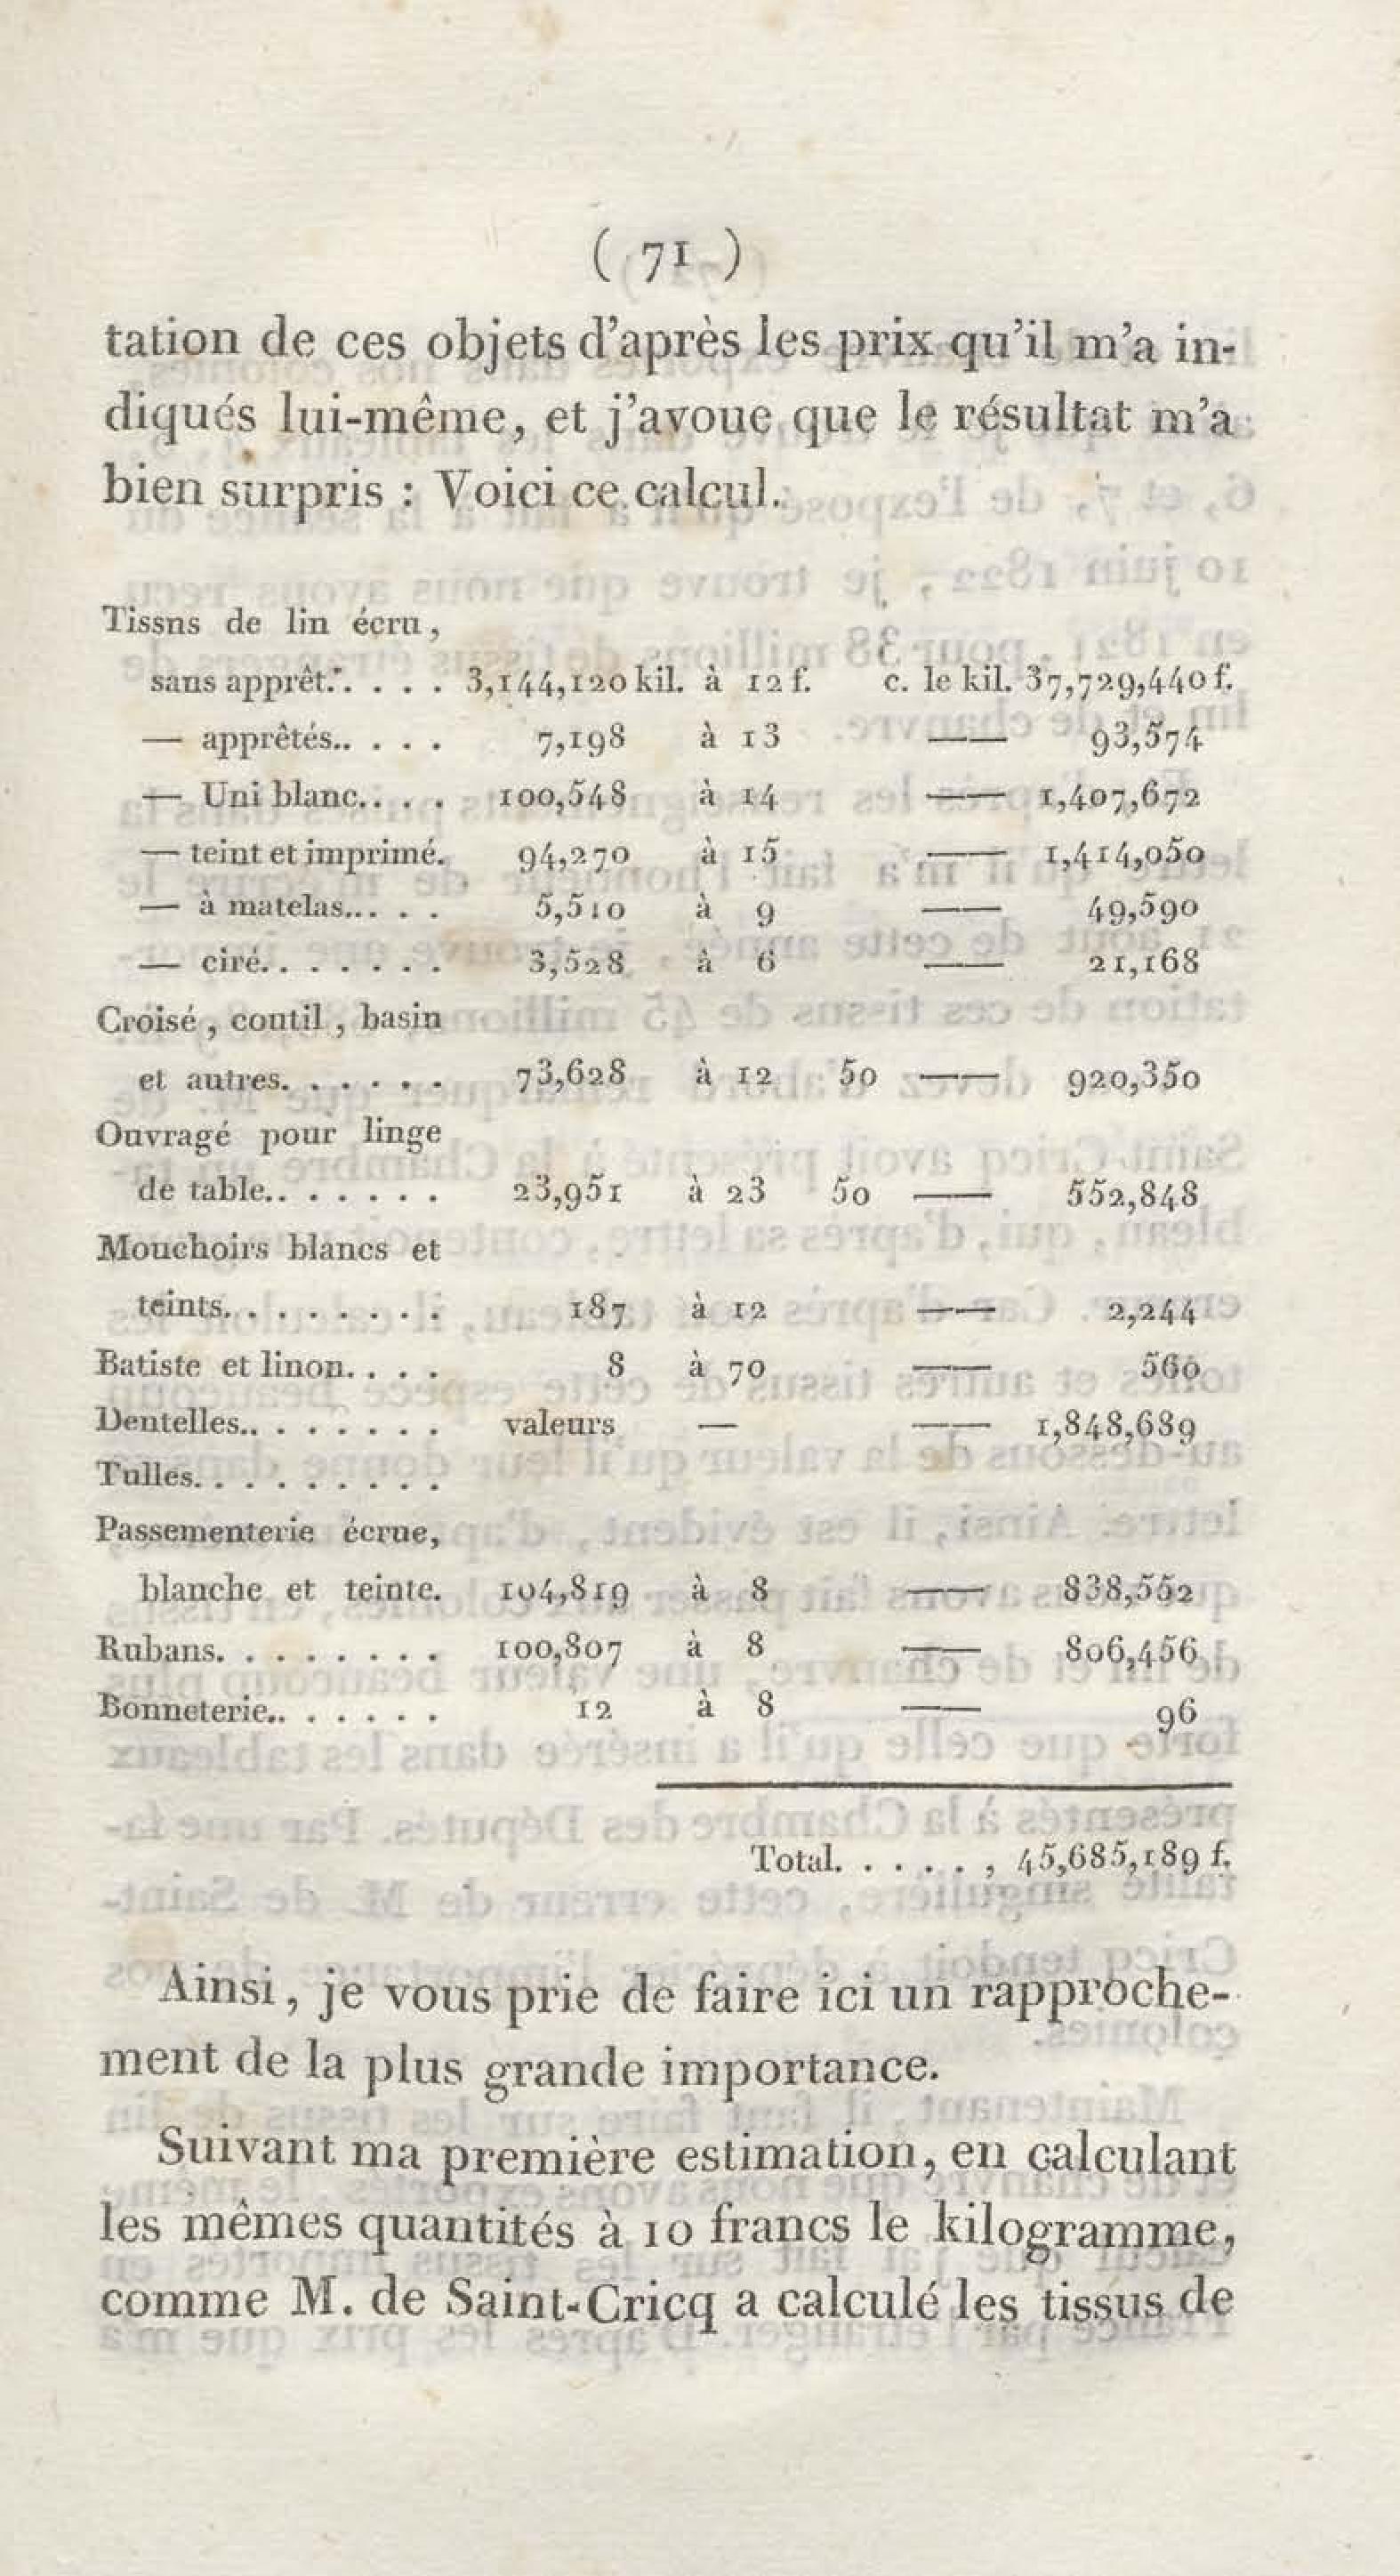 ( 71 )
tation de ces objets d'après les prix qu'il m'a in-
diqués lui-même, et j'avoue que le résultat m'a
bien surpris : Voici ce calcul.
Tissns de lin écru,
sans apprêt.. . . . 3,144,120 kil. à 12 f. c. le kil. 37,729,440 f.
— apprêtés.. . . . 7,198 à 13 —— 93,574
— Uni blanc.. . . 100,548 à 14 —— 1,407,672
— teint et imprimé. 94,270 à 15 —— 1,414,050
— à matelas... . . 5,510 à 9 —— 49,590
— ciré. . . . . . . 3,528 à 6 —— 21,168
Croisé, coutil, basin
et autres. . . . . . 73,628 à 12 50 —— 920,350
Ouvragé pour linge
de table.. . . . . . 23,951 à 23 50 —— 552,848
Mouchoirs blancs et
teints. . . . . . . . 187 à 12 —— 2,244
Batiste et linon. . . . 8 à 70 —— 560
Dentelles.. . . . . . . valeurs — —— 1,848,689
Tulles. . . . . . . . .
Passementerie écrue,
blanche et teinte. 104,819 à 8 —— 838,552
Rubans. . . . . . . . 100,807 à 8 —— 806,456
Bonneterie.. . . . . . 12 à 8 —— 96
Total. . . . . . , 45,685,189 f.
Ainsi, je vous prie de faire ici un rapproche-
ment de la plus grande importance.
Suivant ma première estimation, en calculant
les mêmes quantités à 10 francs le kilogramme,
comme M. de Saint-Cricq a calculé les tissus de